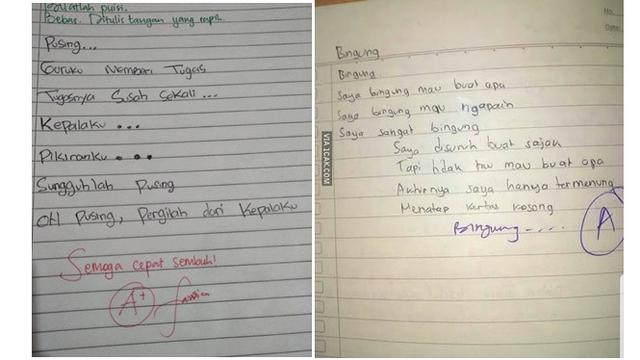 Buatlah puisi.
Bebas. Ditulis tangan yang rapi.
Pusing...
Guruku Memberi Tugas
Tugasnya Susah Sekali...
Kepalaku...
Pikiranku...
Sungguhlah Pusing
Oh Pusing, Pergilah dari Kepalaku
Semoga cepat sembuh!
A+
No.
Date:
Bingung
Bingung
Saya bingung mau buat apa
Saya bingung mau ngapain
Saya sangat bingung
Saya disuruh buat sajak
Tapi tidak tau mau buat apa
Akhirnya saya hanya termenung
Menatap kertas kosong
Bingung....
A
VIA 1CAK.COM